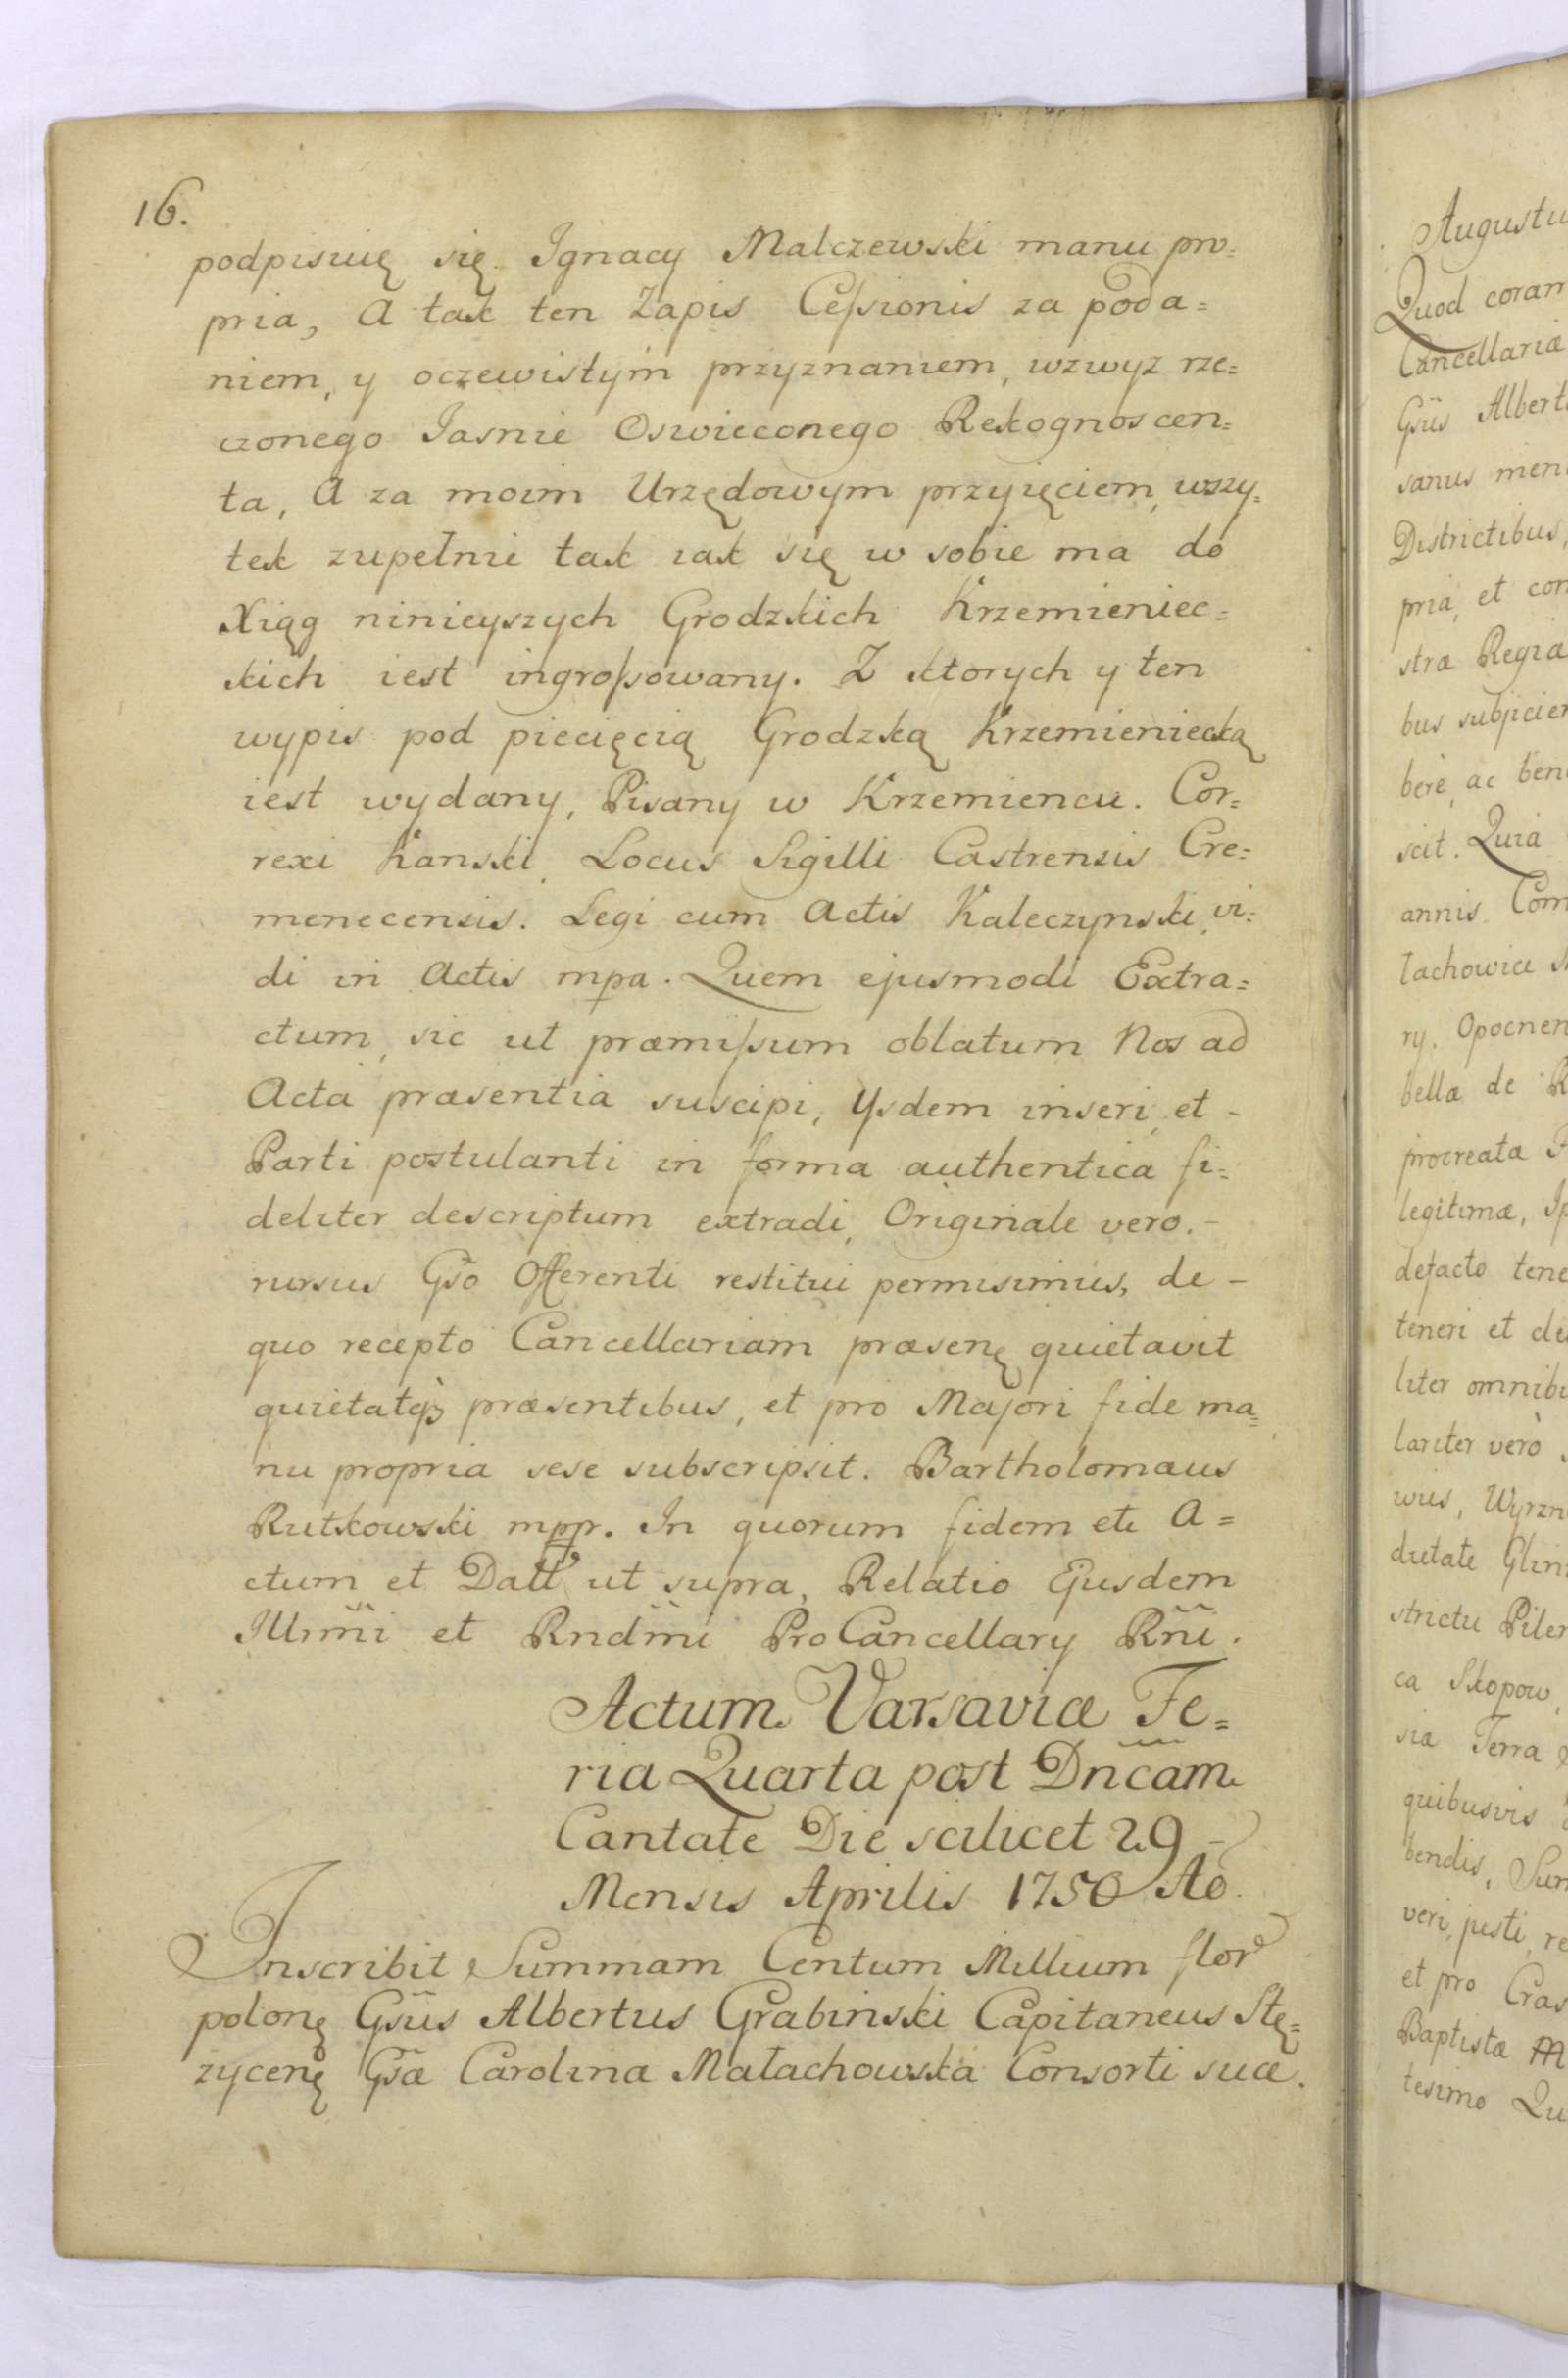 16.
podpisuię się. Ignacy Malczewski manu pro=
pria, A tak ten Zapis Cessionis za poda=
niem, y oczewistym przyznaniem, wzwyz rze=
czonego Iasnie Oswieconego Rekognoscen=
ta, A za moim Urzędowym przyięciem, wszy=
tek zupełnie tak iak się w sobie ma do
Xiąg ninieyszych Grodzkich Krzemieniec=
kich iest ingrossowany. Z ktorych y ten
wypis pod piecięcią Grodzką Krzemieniecką
iest wydany, Pisany w Krzemiencu. Cor=
rexi Kanski, Locus Sigilli Castrensis Cre=
menecensis. Legi cum Actis Kaleczynski, vi=
di in Actis mpa. Quem ejusmodi Extra=
ctum, sic ut præmissum oblatum Nos ad
Acta præsentia suscipi, Ysdem inseri, et -
Parti postulanti in forma authentica fi=
deliter descriptum extradi, Originale vero. -
rursus Gso Offerenti restitui permisimus, de -
quo recepto Cancellariam præsenę quietavit
quietatqȝ præsentibus, et pro Majori fide ma=
nu propria sese subscripsit. Bartholomæus
Rutkowski mppr. In quorum fidem etc A=
ctum et Datt ut supra, Relatio Ejusdem
Illmi et Rndmi ProCancellary Rni.
Actum Varsaviæ Fe=
ria Quarta post Dncam
Cantate Die scilicet 29 -
Mensis Aprilis 1750 Ao.
Inscribit Summam Centum Millium flor
polonę Gsus Albertus Grabinski Capitaneus Stę=
zycenę Gsæ Carolina Małachowska Consorti suæ.
Augustu
Quod coram
Cancellaria
Gsus Albert
sanus men
Districtibus,
pria, et con
stra Regia
bus subjicien
berè, ac ben
scit. Quia
annis Com
łachowice
ry, Opocnen
bella de R
procreata F
legitimæ, Ip
defacto tene
teneri et de
liter omnibu
lariter verò
wies, Wyrzn
dietate Glin
strictu Pilen
ca Skopow,
sia Terra
quibusvis
bendis, Sum
veri, justi, re
et pro Cras
Baptistæ M
tesimo Qu